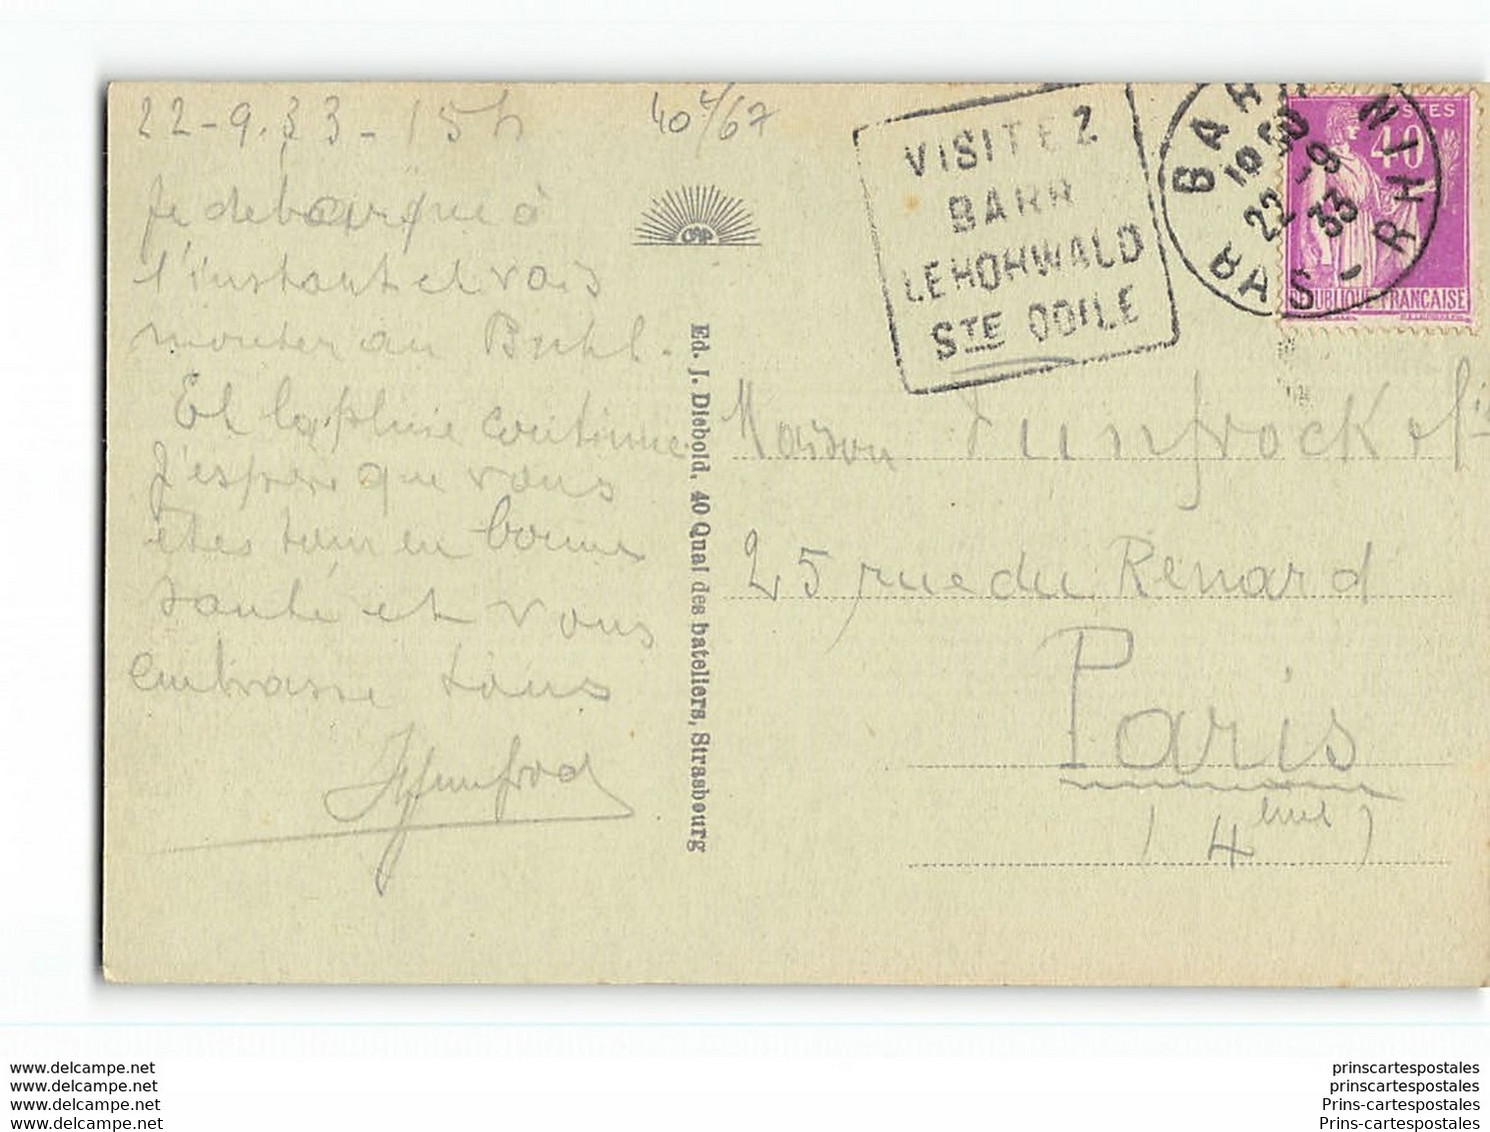 22-9.33 - 15h
40 4/67
Je debarque à
l'instant et vais
monter au Buhl.
Et la pluie continue
J'espère que vous
êtes tous en bonne
santé et vous
embrasse tous
CAP
Ed. J. Diebold, 40 Quai des bateliers, Strasbourg
VISITEZ
BARR
LE HOHWALD
STE ODILE
BARR
BAS-RHIN
22-9
33
POSTES
40
REPUBLIQUE FRANCAISE
Maison Funfrock & fils
25 rue du Renard
Paris
(4eme)
www.delcampe.net
www.delcampe.net
www.delcampe.net
www.delcampe.net
prinscartespostales
prinscartespostales
Prins-cartespostales
Prins-cartespostales